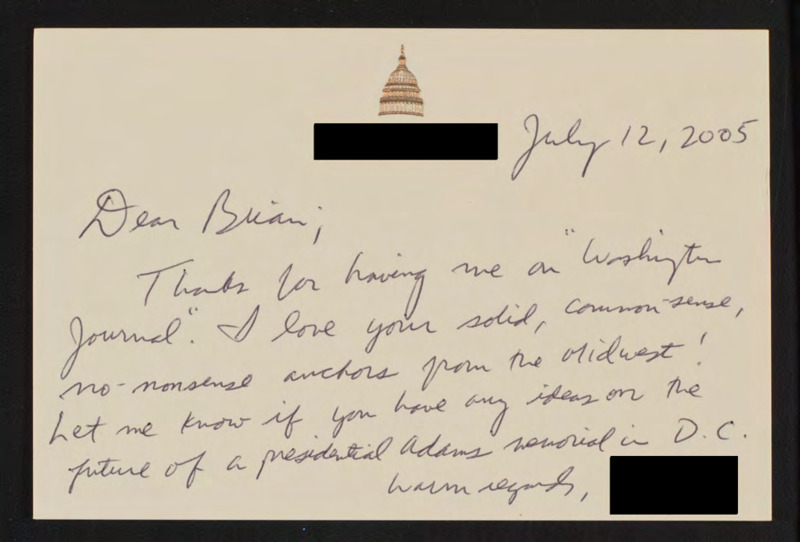 July 12, 2005
Dear Brian;
Thanks for having me on "Washington
Journal". I love your solid, common-sense,
no-nonsense anchors from the Midwest!
Let me know if you have any ideas on the
future of a presidential Adams memorial in D.C.
Warm regards,